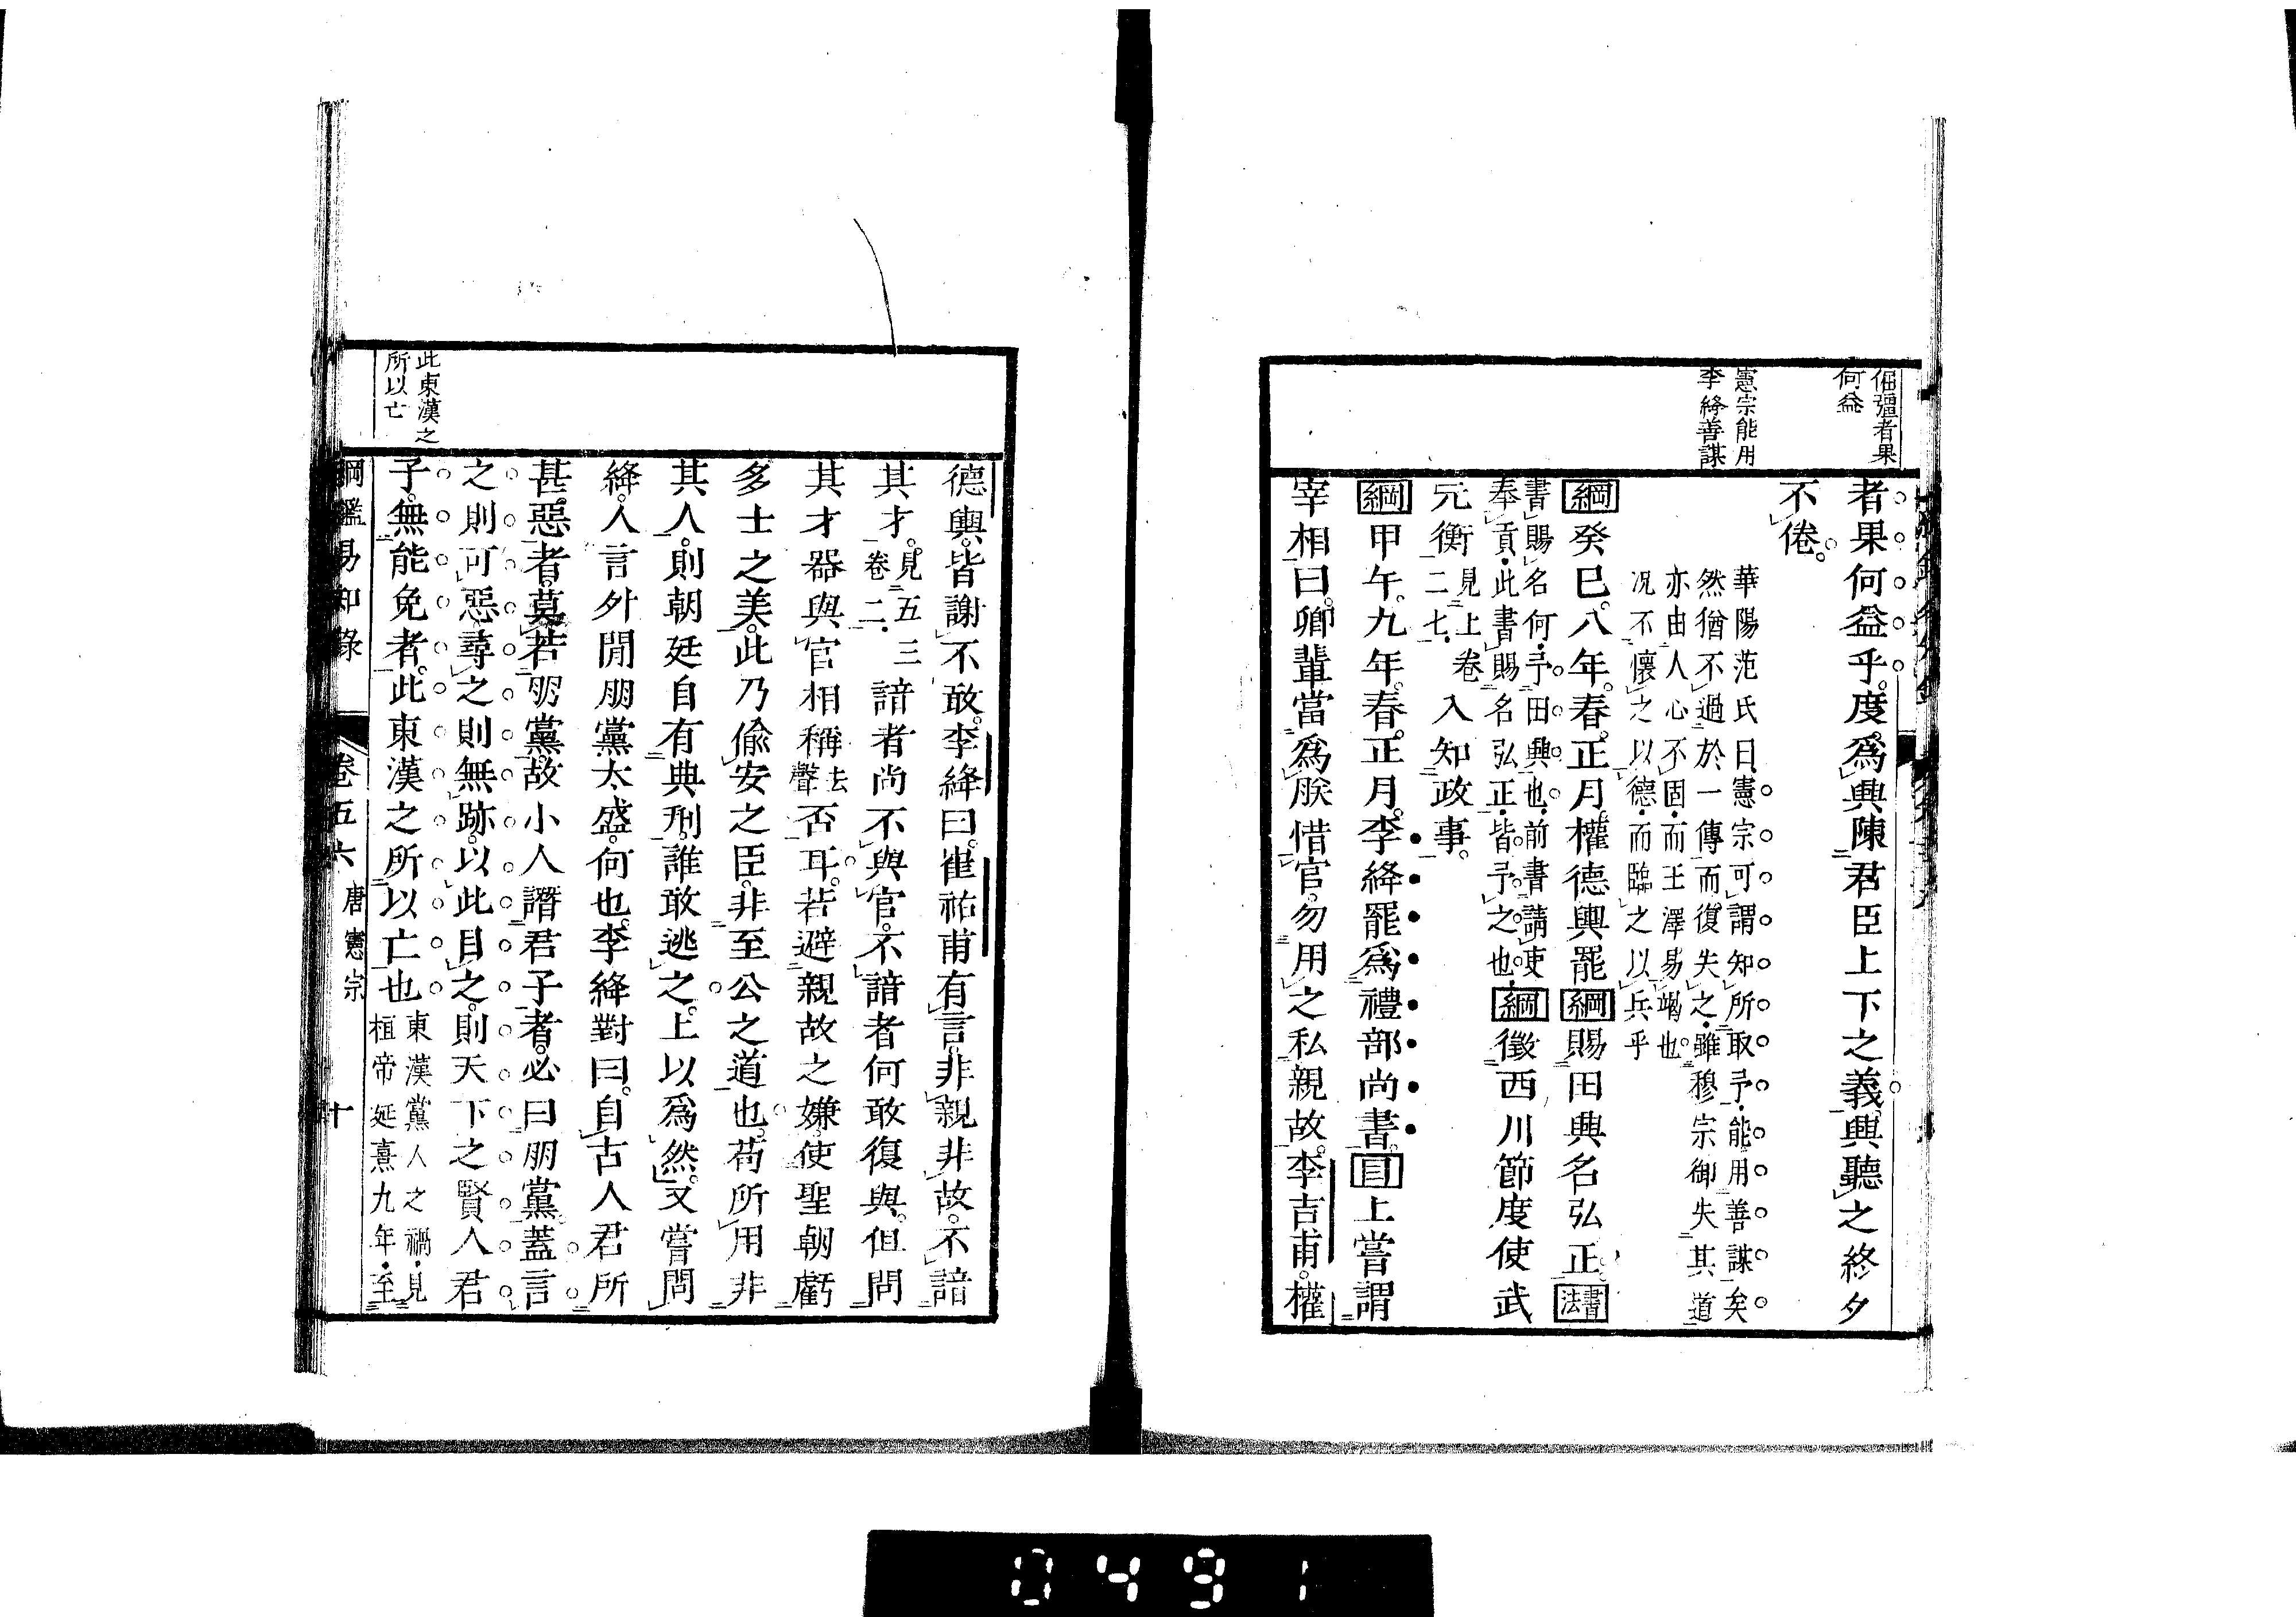 倔彊者果
何益
憲宗能用
李絳善謀
者果何益乎。度。爲興陳君臣上下之義。興聽之終夕
不倦。
華陽范氏曰憲宗可謂知所取予能用善謀矣
然猶不過於一傳而復失之雖穆宗御失其道
亦由人心不固而王澤易竭也
况不懷之以德而臨之以兵乎
綱癸巳。八年。春。正月。權德輿罷綱賜田興名弘正書法
書賜名何予田興也前書請吏
奉貢此書賜名弘正皆予之也綱徵西川節度使武
元衡見上卷二七入知政事。
綱甲午。九年。春。正月。李絳罷爲禮部尚書。目上嘗謂
宰相曰。卿輩當爲朕惜官。勿用之私親故。李吉甫。權
此東漢之
所以亡
德輿。皆謝不敢。李絳曰。崔祐甫有言。非親非故。不諳
其才。見五三卷二諳者尚不與官。不諳者何敢復與。但問
其才器與官相稱去聲否耳。若避親故之嫌。使聖朝虧
多士之美。此乃偸安之臣。非至公之道也。苟所用非
其人。則朝廷自有典刑。誰敢逃之。上以爲然。又嘗問
絳。人言外閒朋黨太盛。何也。李絳對曰。自古人君所
甚惡者。莫若朋黨。故小人譖君子者。必曰朋黨。蓋言
之則可惡。尋之則無跡。以此目之。則天下之賢人君
子。無能免者。此東漢之所以亡也東漢黨人之禍見
桓帝延熹九年至
綱鑑易知錄 卷五六 唐憲宗 十
0491